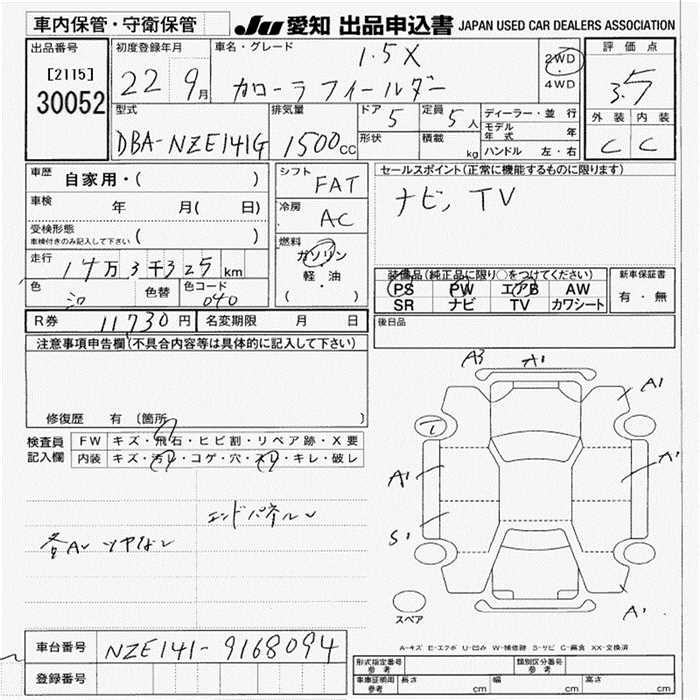 車内保管・守衛保管
JU 愛知 出品申込書 JAPAN USED CAR DEALERS ASSOCIATION
出品番号 初度登録年月 車名・グレード 1.5X 2WD 4WD 評価点
[2115]
30052 22 9月 カローラフィールダー 3.5
型式 排気量 ドア 5 定員 5人 ディーラー・並行 外装 内装
DBA-NZE141G 1500cc 形状 積載 kg モデル年式 年 C C
ハンドル 左・右
車歴 自家用・( ) シフト FAT セールスポイント(正常に機能するものに限ります)
車検 年 月(日) 冷房 AC ナビ, TV
受検形態
車検付きのみ記入して下さい ( )
燃料 ガソリン
軽・油
( )
走行 14万3千325km
色 シロ 色替 色コード 040
装備品(純正品に限り○をつけてください) 新車保証書
PS PW エアB AW 有・無
SR ナビ TV カワシート
R券 11730円 名変期限 月 日 後日品
注意事項申告欄(不具合内容等は具体的に記入して下さい)
修復歴 有 〔箇所 〕
検査員記入欄 FW キズ・飛石・ヒビ割・リペア跡・X要
内装 キズ・汚レ・コゲ・穴・スレ・キレ・破レ
エンドパネルν
各Aν ツヤなし
A3 A1
A1
A1
A1
S1
A1
スペア
A-キズ E-エクボ U-凹み W-補修跡 S-サビ C-腐食 XX-交換済
車台番号 NZE141-9168094
登録番号
形式指定番号 参考 類別区分番号 参考
車庫証明用 参考 長さ cm 幅 cm 高さ cm